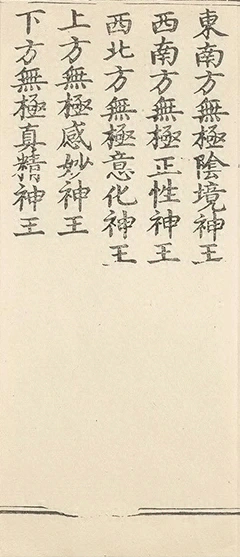 東南方無極陰境神王
西南方無極正性神王
西北方無極意化神王
上方無極感妙神王
下方無極真精神王